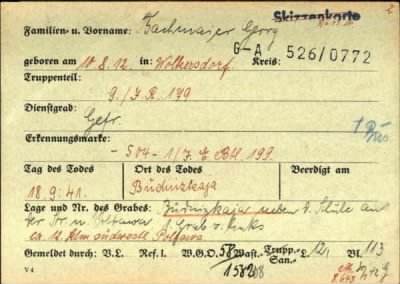 Skizzenkarte
Familien- u. Vorname: Bachmaier Georg
G-A 526/0772
geboren am 10.8.12. in: Wolkersdorf. Kreis:
Truppenteil:
9./J.R. 179
Dienstgrad:
Gefr.
Erkennungsmarke:
- 504 - 1/J. E. Btl. 199.
Tag des Todes Ort des Todes Beerdigt am
18.9.41. Budnizkaja
Lage und Nr. des Grabes: Budnizkaja neben d. Schule an
der Str. n. Poltawa, 1. Grab v. links
ca. 12 klm südwestl. Poltawa
Gemeldet durch: V.L. Ref. I. W.G.O. 58 Wast.- Trupp.- San.- L. 12, Bl. 113
V 4